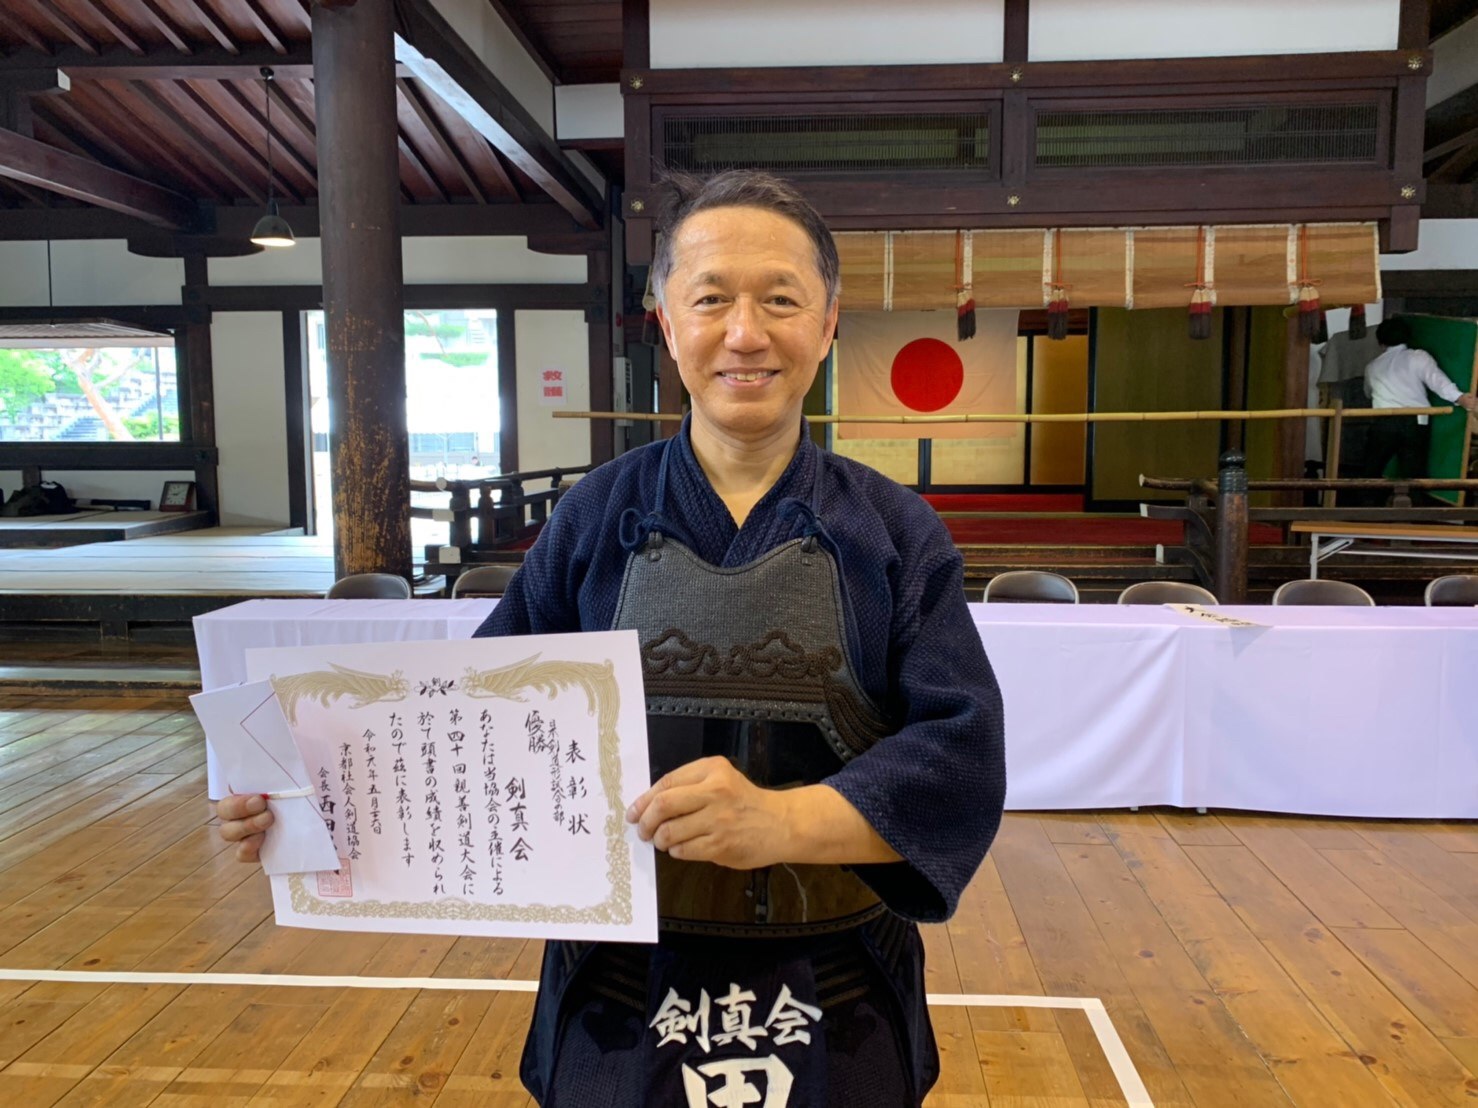 表彰状
優勝
剣真会
あなたは当協会の主催による
第四十回親善剣道大会に
於て頭書の成績を収められ
たので茲に表彰します
令和元年五月二十六日
京都社会人剣道協会
会長
救護
剣真会